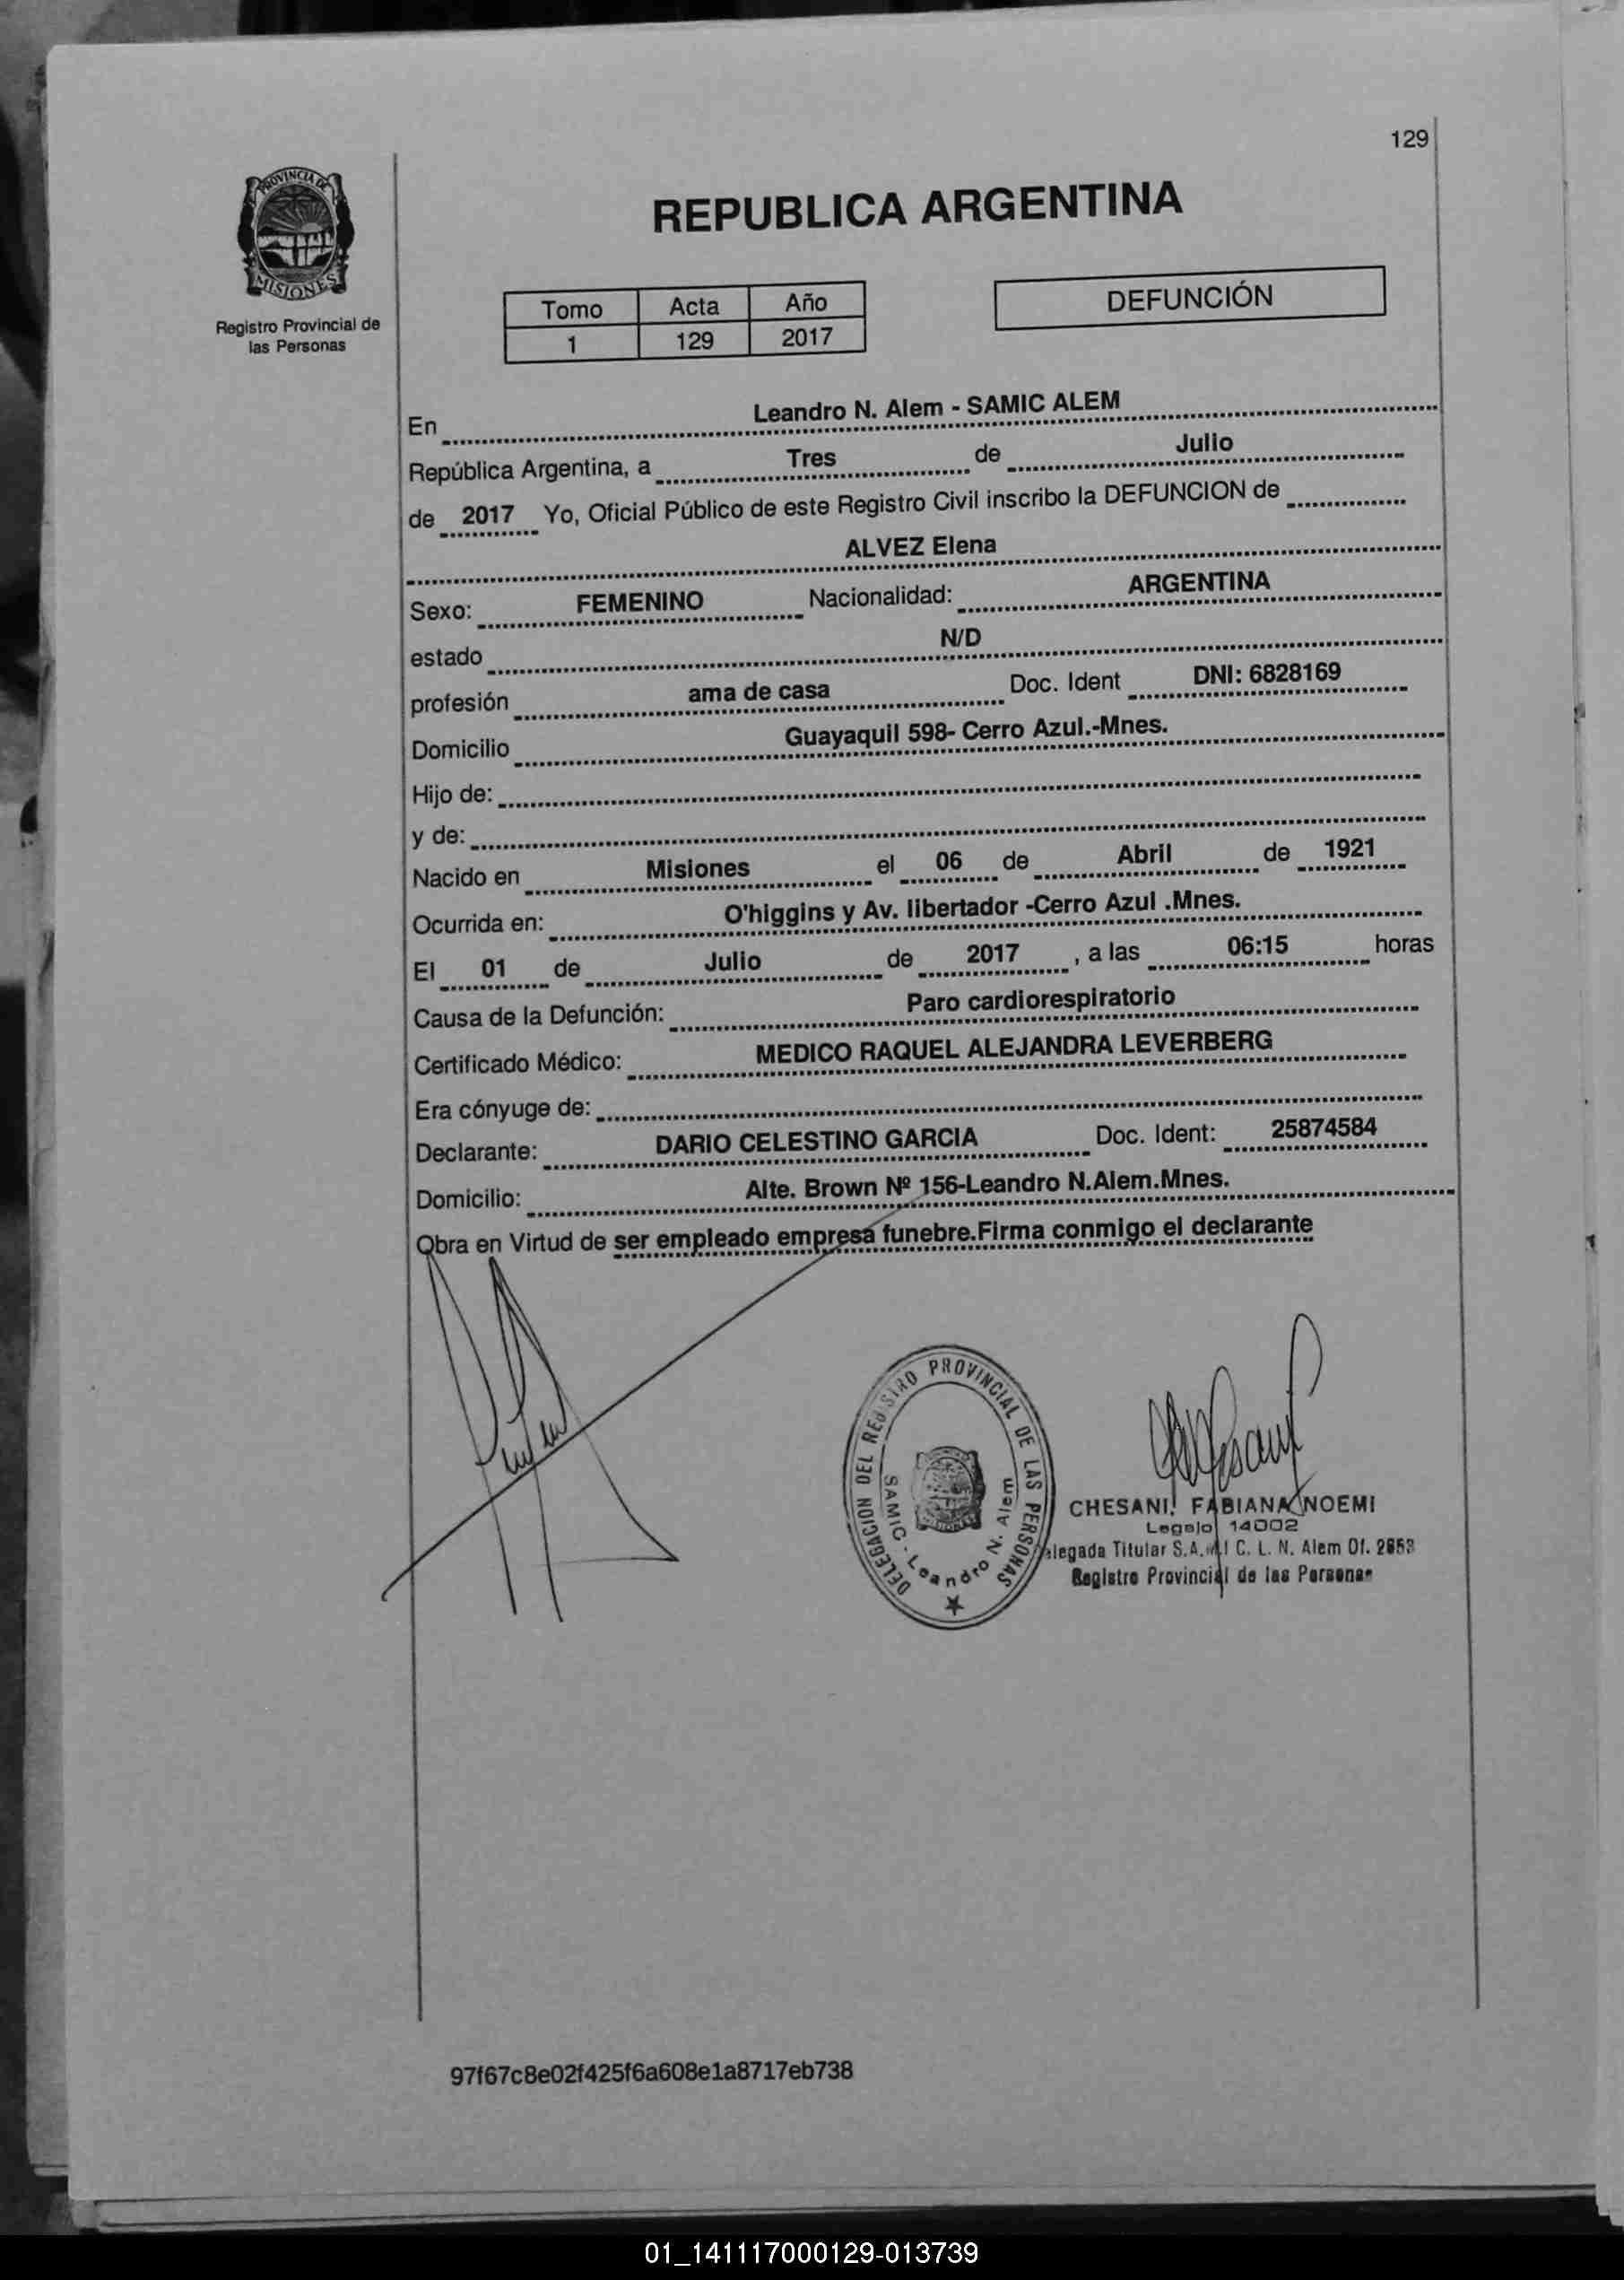 129
PROVINCIA DE
MISIONES
Registro Provincial de
las Personas
REPUBLICA ARGENTINA
Tomo Acta Año
1 129 2017
DEFUNCIÓN
En Leandro N. Alem - SAMIC ALEM
República Argentina, a Tres de Julio
de 2017 Yo, Oficial Público de este Registro Civil inscribo la DEFUNCION de
ALVEZ Elena
Sexo: FEMENINO Nacionalidad: ARGENTINA
estado N/D
profesión ama de casa Doc. Ident DNI: 6828169
Domicilio Guayaquil 598- Cerro Azul.-Mnes.
Hijo de:
y de:
Nacido en Misiones el 06 de Abril de 1921
Ocurrida en: O'higgins y Av. libertador -Cerro Azul .Mnes.
El 01 de Julio de 2017 , a las 06:15 horas
Causa de la Defunción: Paro cardiorespiratorio
Certificado Médico: MEDICO RAQUEL ALEJANDRA LEVERBERG
Era cónyuge de:
Declarante: DARIO CELESTINO GARCIA Doc. Ident: 25874584
Domicilio: Alte. Brown Nº 156-Leandro N.Alem.Mnes.
Obra en Virtud de ser empleado empresa funebre.Firma conmigo el declarante
DELEGACION DEL REGISTRO PROVINCIAL DE LAS PERSONAS
SAMIC - Leandro N. Alem
CHESANI, FABIANA NOEMI
Legajo 14002
Delegada Titular S.A.M.I C. L. N. Alem Of. 2653
Registro Provincial de las Personas
97f67c8e02f425f6a608e1a8717eb738
01_141117000129-013739